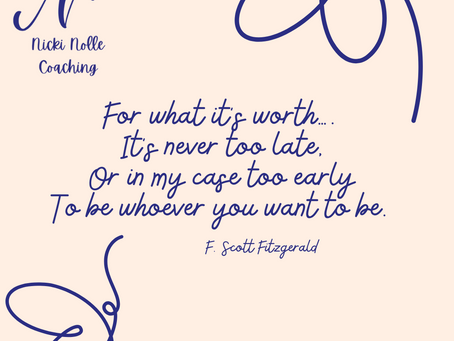 Nicki Nolle
Coaching
For what it's worth....
It's never too late,
Or in my case too early
To be whoever you want to be.
F. Scott Fitzgerald